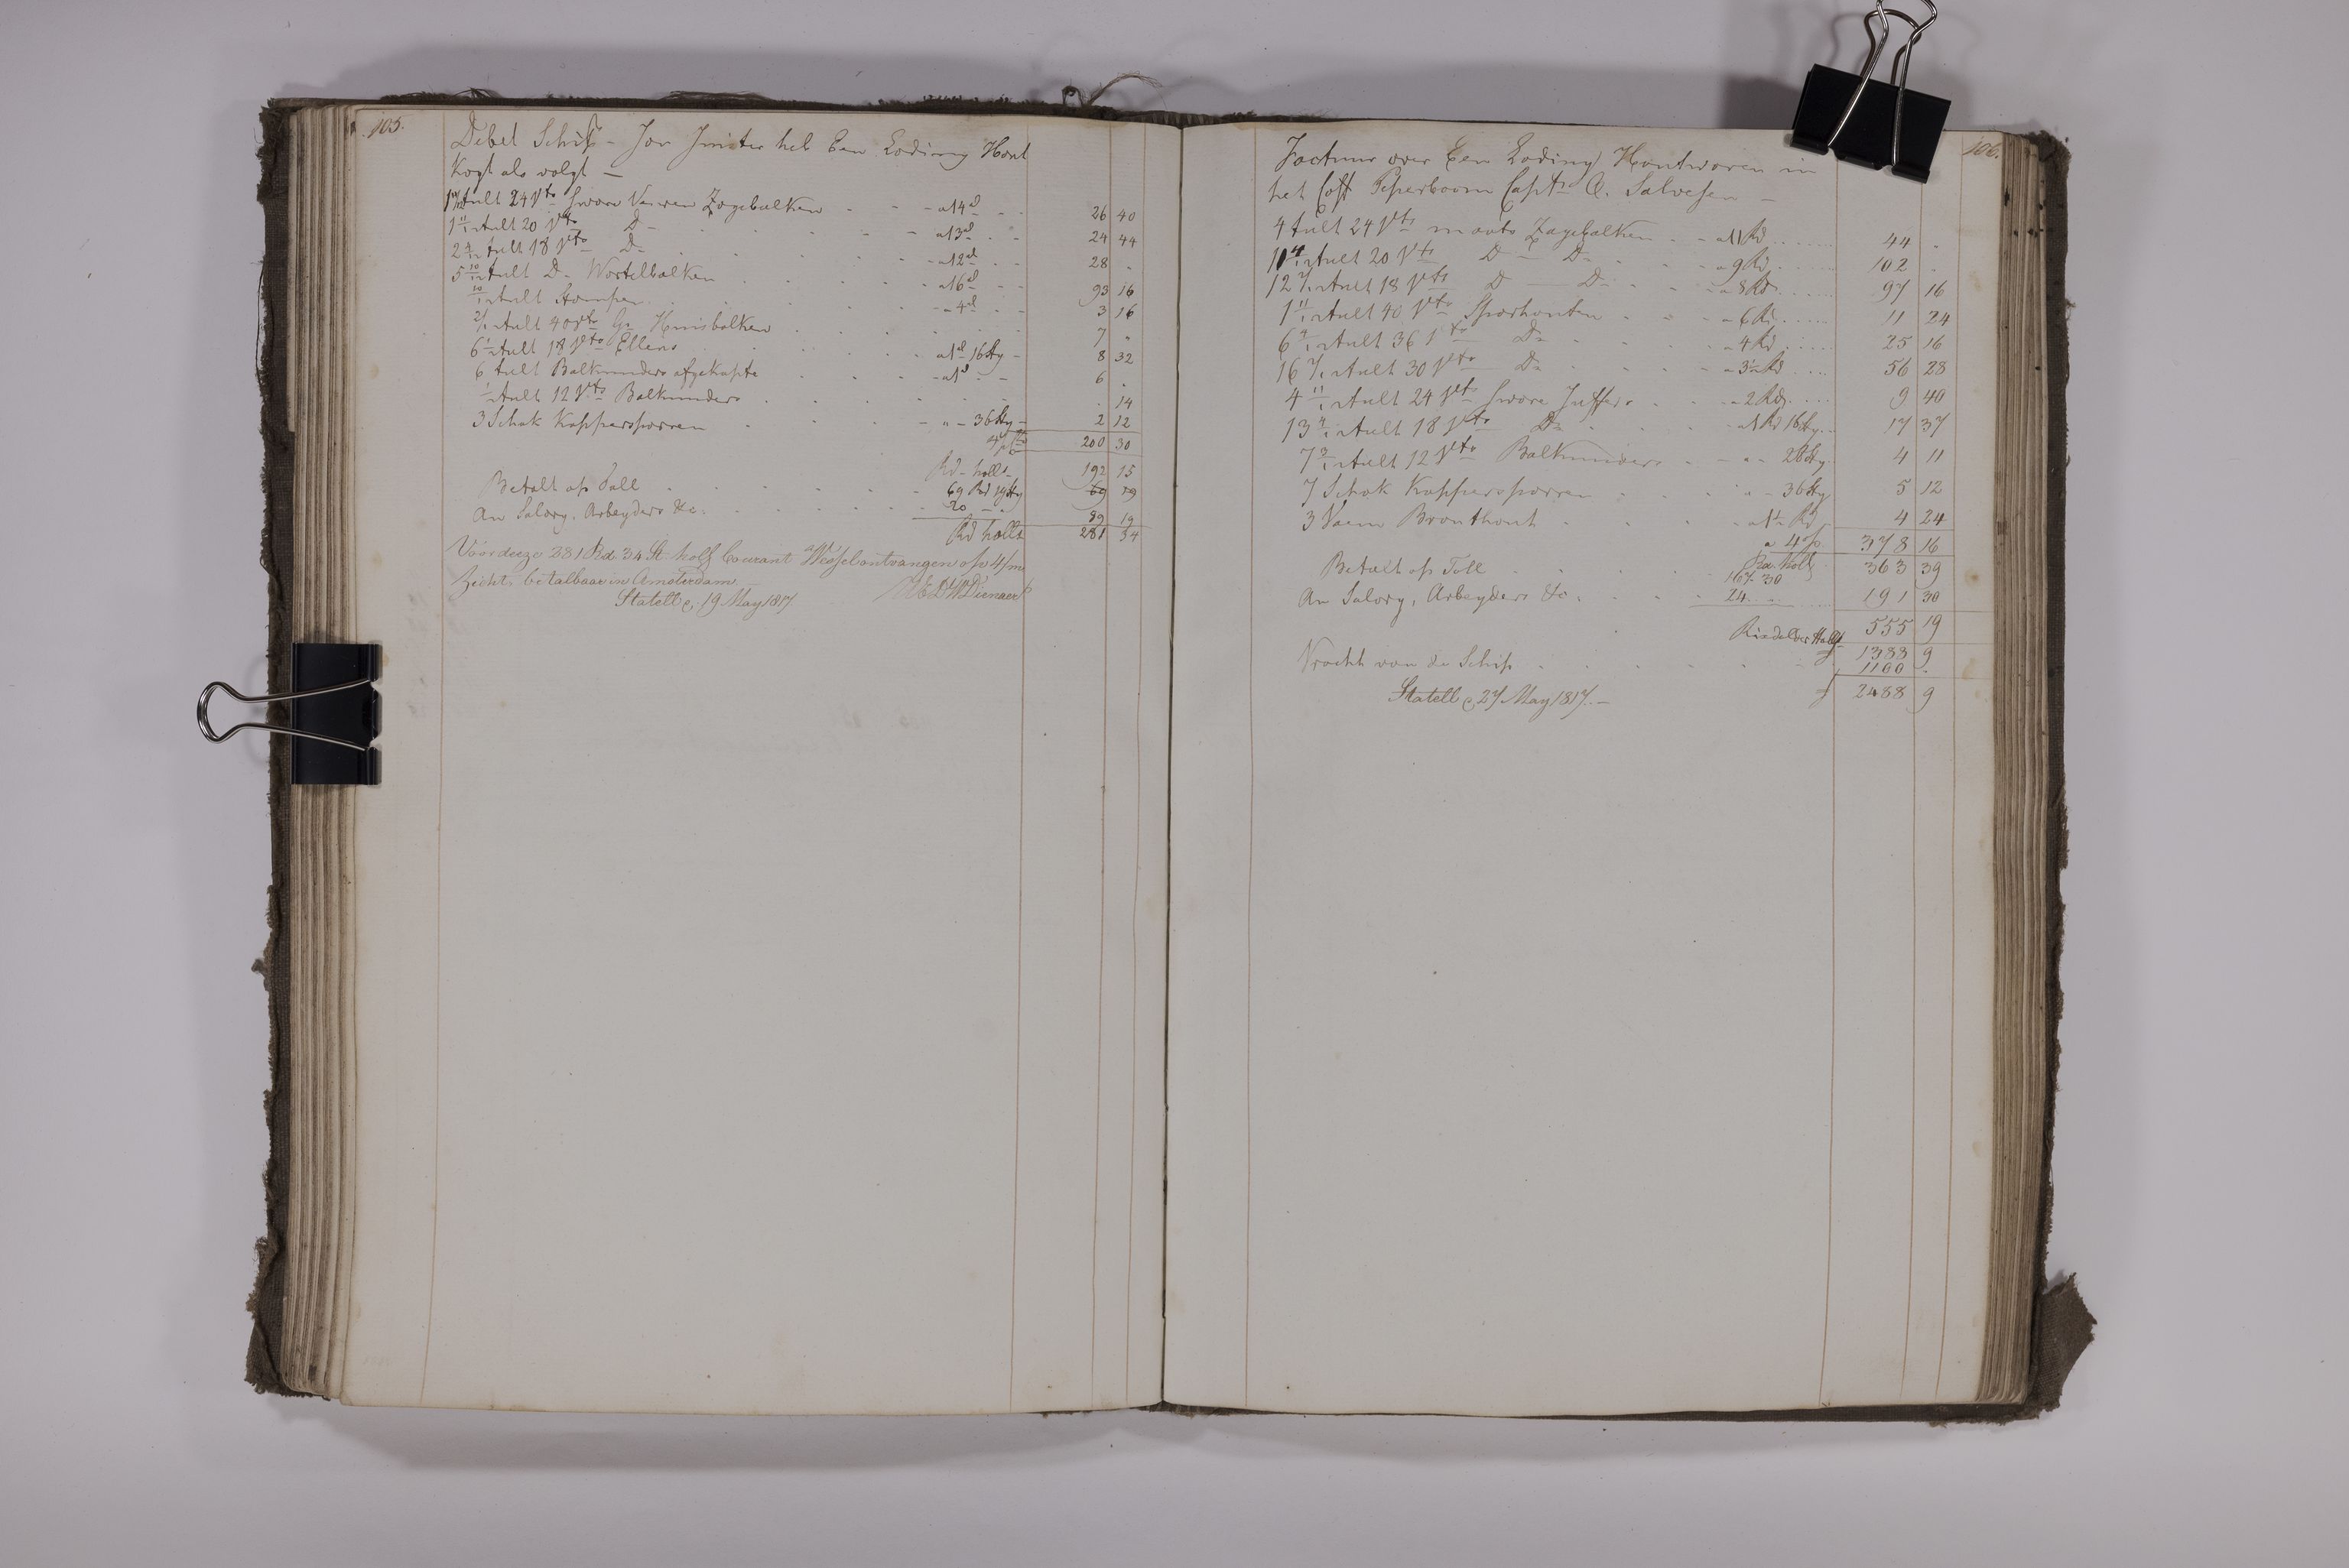 105.
Debet Schip - Jon Juister heb Een Lading Hout
Kogt als volgt —
Tult 24 Vts Sware Vueren Zagebalken - a 14 d 26 40
1 11/1 Tult 20 Vts D- - a 13 d 24 44
2 4/1 Tult 18 Vts D- - a 12 d 28 .
5 10/1 Tult D- Wortelbalken - a 16 d 93 16
10/1 Tult Stomper - 4 d 3 16
2/1 Tult 40 Vts Gr. Huisbalken 7 .
6 1/1 Tult 18 Vts Ellens - a 1 d 16 Sty - 8 32
6 Tult Balkunders afgekapte - a 1 d 6 .
1/1 Tult 12 Vts Balkunders . 14
3 Schok Koppersporren - a - 36 Sty - 2 12
4 p Cto 200 30
Rd holls 192 15
Betalt op Toll 69 Rd 19 Sty 69 19
An Salary, Arbeyders &c. 20 - . 89 19
Rd holls 281 34
Voor deeze 281 Rd. 34 St. holl Courant a Wessel ontvangen op 4/m
Zicht, betalbaar in Amsterdam. —
Statell d. 19 May 1817
106.
Factuur over Een Lading Houtwaren in
het Coff Peperboom Captn A. Salvesen —
4 Tult 24 Vts maats Zagebalken - a 11 Rd 44 .
10 4/1 Tult 20 Vts D — D- - a 9 Rd 102 .
12 2/1 Tult 18 Vts D — D- - a 8 Rd 97 16
1 11/1 Tult 40 Vts Sparhouten - a 6 Rd 11 24
6 4/1 Tult 36 Vts D- - a 4 Rd 25 16
16 2/1 Tult 30 Vts D- - a 3½ Rd 56 28
4 11/1 Tult 24 Vts Sware Juffers - a 2 Rd 9 40
13 4/1 Tult 18 Vts D- - a 1 Rd 16 Sty 17 37
7 3/1 Tult 12 Vts Balkunders - a - 28 Sty 4 11
7 Schok Koppersporren - a - 36 Sty 5 12
3 Vaem Brandhout - a 1½ Rd 4 24
a 4 p 378 16
Rd. holls 363 39
Betalt op Toll 167. 30
An Salary, Arbeyders &c. 24. - 191 30
Rixdalder Holls 555 19
f 1388 9
Vracht van de Schip 1100 .
Statell d. 27 May 1817. — f 2488 9